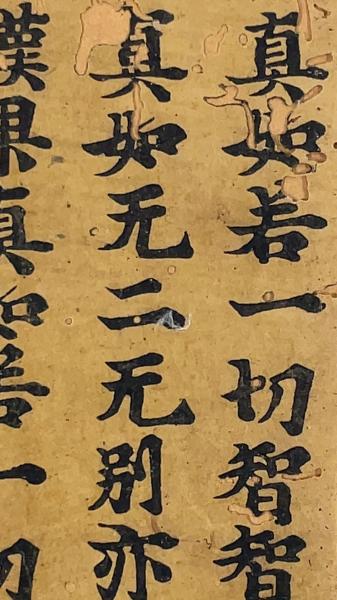 真如若一切智智
真如无二无别亦
漢果真如若一切